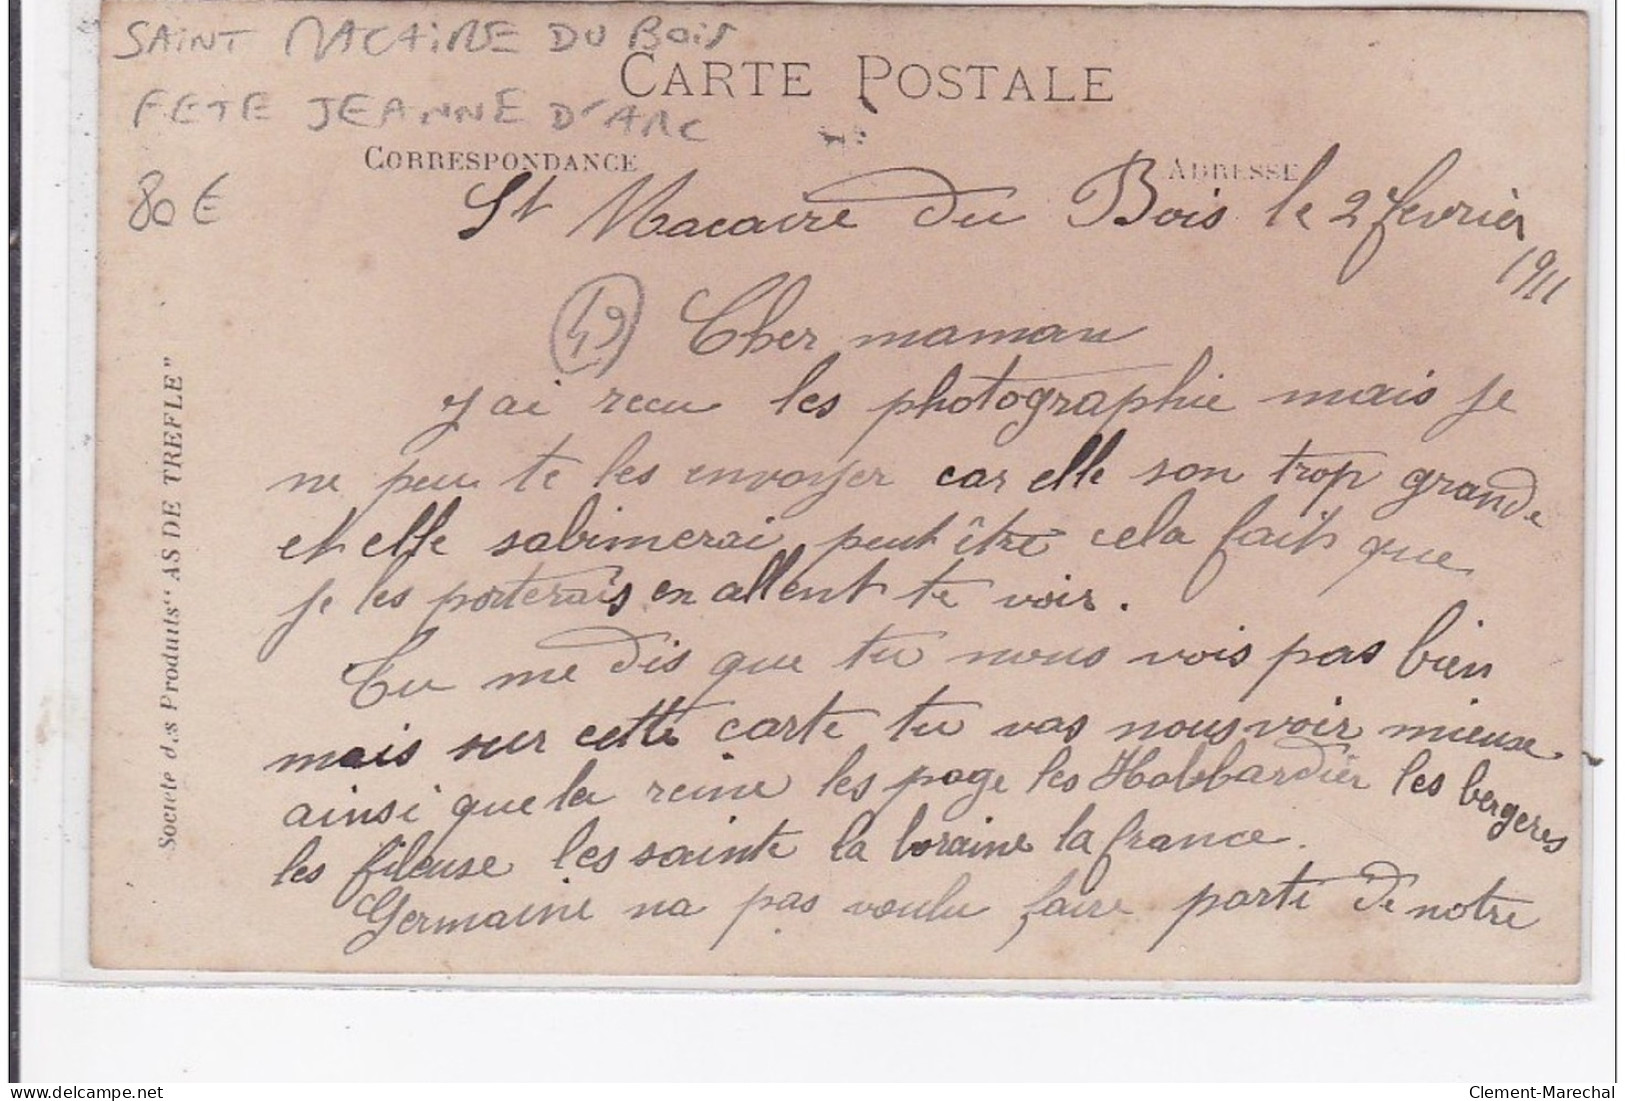 SAINT MACAIRE DU BOIS
FETE JEANNE D'ARC
80 €
CARTE POSTALE
CORRESPONDANCE
ADRESSE
St Macaire du Bois le 2 fevrièr
1911
49
Cher maman
j'ai recu les photographie mais je
ne peu te les envoyer car elle son trop grande
et elle sabimerai peut être cela fait que
je les porterais en allent te voir.
Tu me dis que tu nous vois pas bien
mais sur cette carte tu vas nous voir mieuse
ainsi que la reine les page les Halbbardier les bergeres
les fileuse les sainte la loraine la france.
Germaine na pas voulu faire parti de notre
Societe d.s Produits "AS DE TREFLE"
Clement-Marechal